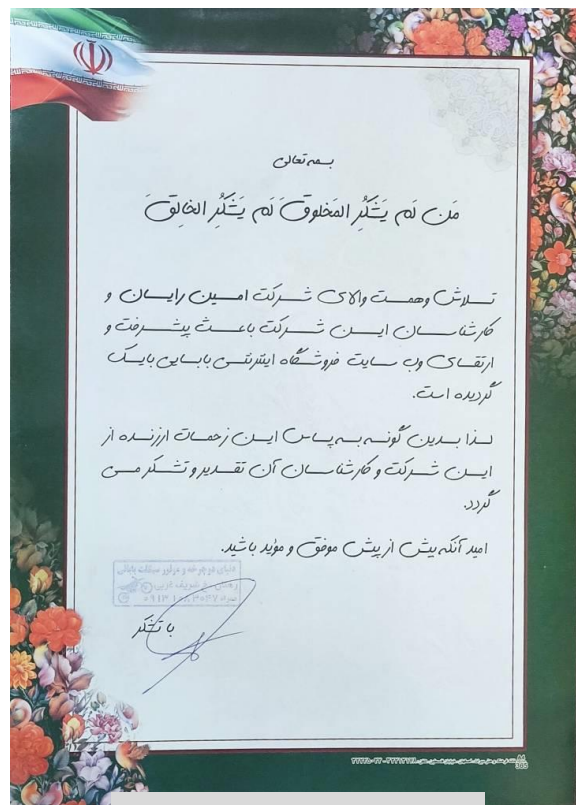 بسمه تعالی
مَن لَم یَشکُرِ المَخلوقَ لَم یَشکُرِ الخالِقَ
تلاش و همت والای شرکت امین رایسان و
کارشناسان این شرکت باعث پیشرفت و
ارتقای وب سایت فروشگاه اینترنتی بابایی بایک
گردیده است.
لذا بدین گونه به پاس این زحمات ارزنده از
این شرکت و کارشناسان آن تقدیر و تشکر می
گردد.
امید آنکه بیش از پیش موفق و مؤید باشید.
دنیای دوچرخه و موتور سیکلت بابائی
با تشکر
385